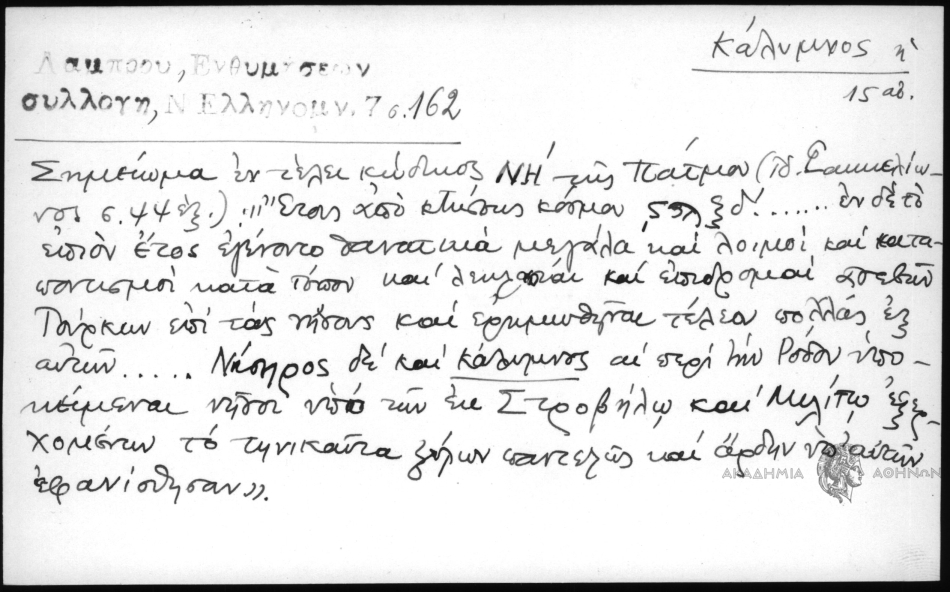 Κάλυμνος ἡ
15 αἰ.
Λαμπρου, Ενθυμήσεων
συλλογη, Ν Ελληνομν. 7 σ. 162
Σημείωμα ἐν τέλει κώδικος ΝΗ΄ τῆς Πάτμου (Ἰδ. Σακκελίω-
νος σ. 44 ἑξ.) "Ἔτους ἀπὸ κτίσεως κόσμου ϛϡξδ΄....... ἐν δὲ τὸ
εἰπὸν ἔτος ἐγένοντο θανατικὰ μεγάλα καὶ λοιμοὶ καὶ κατα-
ποντισμοὶ κατὰ τόπον καὶ λεηλασίαι καὶ ἐπιδρομαὶ ἀσεβῶν
Τούρκων ἐπὶ τὰς νήσους καὶ ἐρημωθῆναι τέλεον πολλὰς ἐξ
αὐτῶν ..... Νίσηρος δὲ καὶ Κάλυμνος αἱ περὶ τὴν Ρόδον ὑπο-
κείμεναι νῆσοι ὑπὸ τῶν ἐκ Στροβήλῳ καὶ Μιλίτῳ ἐξερ-
χομένων τὸ τηνικαῦτα ξύλων παντελῶς καὶ ἄρδην ὑπ' αὐτῶν
ἐφανίσθησαν».
ΑΚΑΔΗΜΙΑ ΑΘΗΝΩΝ